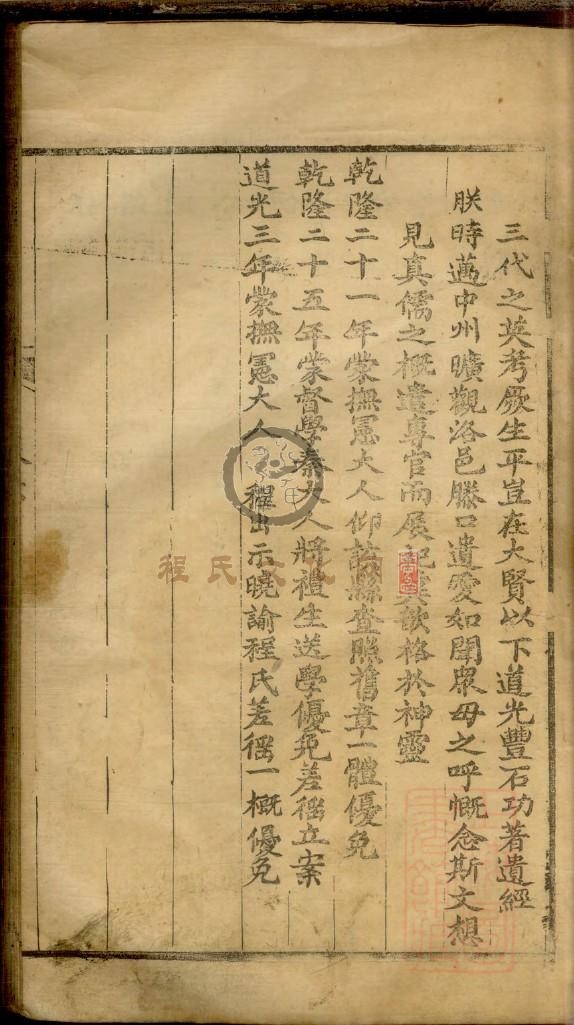 三代之英考厥生平豈在大賢以下道光豐石功著遺經
朕時邁中州曠觀洛邑勝口遺愛如聞眾母之呼慨念斯文想
見真儒之概遣專官而展祀冀歆格於神靈
乾隆二十一年蒙撫憲大人仰該縣查照舊章一體優免
乾隆二十五年蒙督學秦大人將禮生送學優免差徭立案
道光三年蒙撫憲大人程出示曉諭程氏差徭一概優免
程氏文化